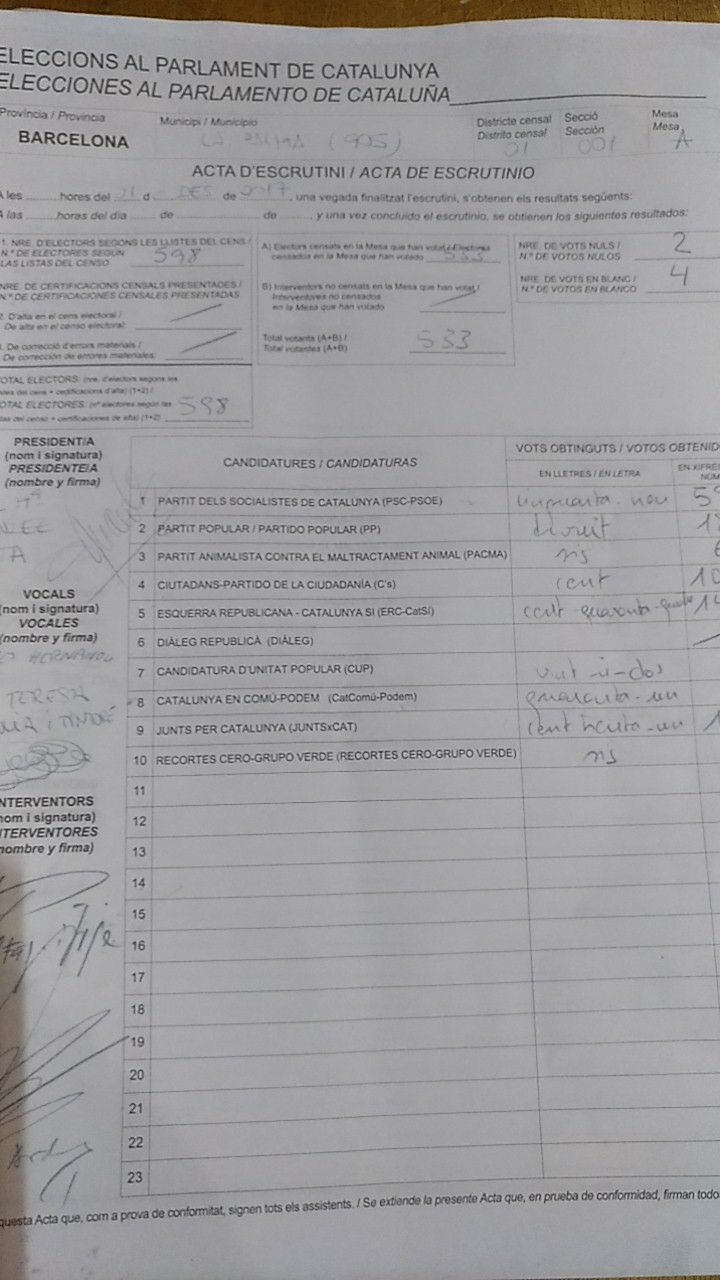 ELECCIONS AL PARLAMENT DE CATALUNYA
ELECCIONES AL PARLAMENTO DE CATALUÑA
Província / Provincia
BARCELONA
Municipi / Municipio
LA PALMA (905)
Districte censal
Distrito censal
01
Secció
Sección
001
Mesa
Mesa
A
ACTA D'ESCRUTINI / ACTA DE ESCRUTINIO
A les ........ hores del 21 d DES de 2017, una vegada finalitzat l'escrutini, s'obtenen els resultats següents:
A las ........ horas del día ........ de ........ de ........, y una vez concluido el escrutinio, se obtienen los siguientes resultados:
1. NRE. D'ELECTORS SEGONS LES LLISTES DEL CENS /
N.º DE ELECTORES SEGÚN
LAS LISTAS DEL CENSO 598
NRE. DE CERTIFICACIONS CENSALS PRESENTADES /
N.º DE CERTIFICACIONES CENSALES PRESENTADAS
2. D'alta en el cens electoral /
De alta en el censo electoral:
De correcció d'errors materials /
De corrección de errores materiales:
TOTAL ELECTORS: (nre. d'electors segons les
llistes del cens + certificacions d'alta) (1+2) /
TOTAL ELECTORES: (nº electores según las
listas del censo + certificaciones de alta) (1+2) 598
A) Electors censats en la Mesa que han votat / Electores
censados en la Mesa que han votado 533
B) Interventors no censats en la Mesa que han votat /
Interventores no censados
en la Mesa que han votado
Total votants (A+B) /
Total votantes (A+B) 533
NRE. DE VOTS NULS /
N.º DE VOTOS NULOS 2
NRE. DE VOTS EN BLANC /
N.º DE VOTOS EN BLANCO 4
PRESIDENT/A
(nom i signatura)
PRESIDENTE/A
(nombre y firma)
VOCALS
(nom i signatura)
VOCALES
(nombre y firma)
TERESA
INTERVENTORS
(nom i signatura)
INTERVENTORES
(nombre y firma)
CANDIDATURES / CANDIDATURAS
VOTS OBTINGUTS / VOTOS OBTENID
EN LLETRES / EN LETRA
EN XIFRE
NÚM
1 PARTIT DELS SOCIALISTES DE CATALUNYA (PSC-PSOE) cinquanta-nou 5
2 PARTIT POPULAR / PARTIDO POPULAR (PP) divuit 1
3 PARTIT ANIMALISTA CONTRA EL MALTRACTAMENT ANIMAL (PACMA) sis 6
4 CIUTADANS-PARTIDO DE LA CIUDADANÍA (C's) cent 10
5 ESQUERRA REPUBLICANA - CATALUNYA SI (ERC-CatSí) cent-quaranta-quatre 14
6 DIÀLEG REPUBLICÀ (DIÀLEG)
7 CANDIDATURA D'UNITAT POPULAR (CUP) vint-i-dos
8 CATALUNYA EN COMÚ-PODEM (CatComú-Podem) quaranta-un
9 JUNTS PER CATALUNYA (JUNTSxCAT) cent trenta-un 1
10 RECORTES CERO-GRUPO VERDE (RECORTES CERO-GRUPO VERDE) sis
11
12
13
14
15
16
17
18
19
20
21
22
23
questa Acta que, com a prova de conformitat, signen tots els assistents. / Se extiende la presente Acta que, en prueba de conformidad, firman todo